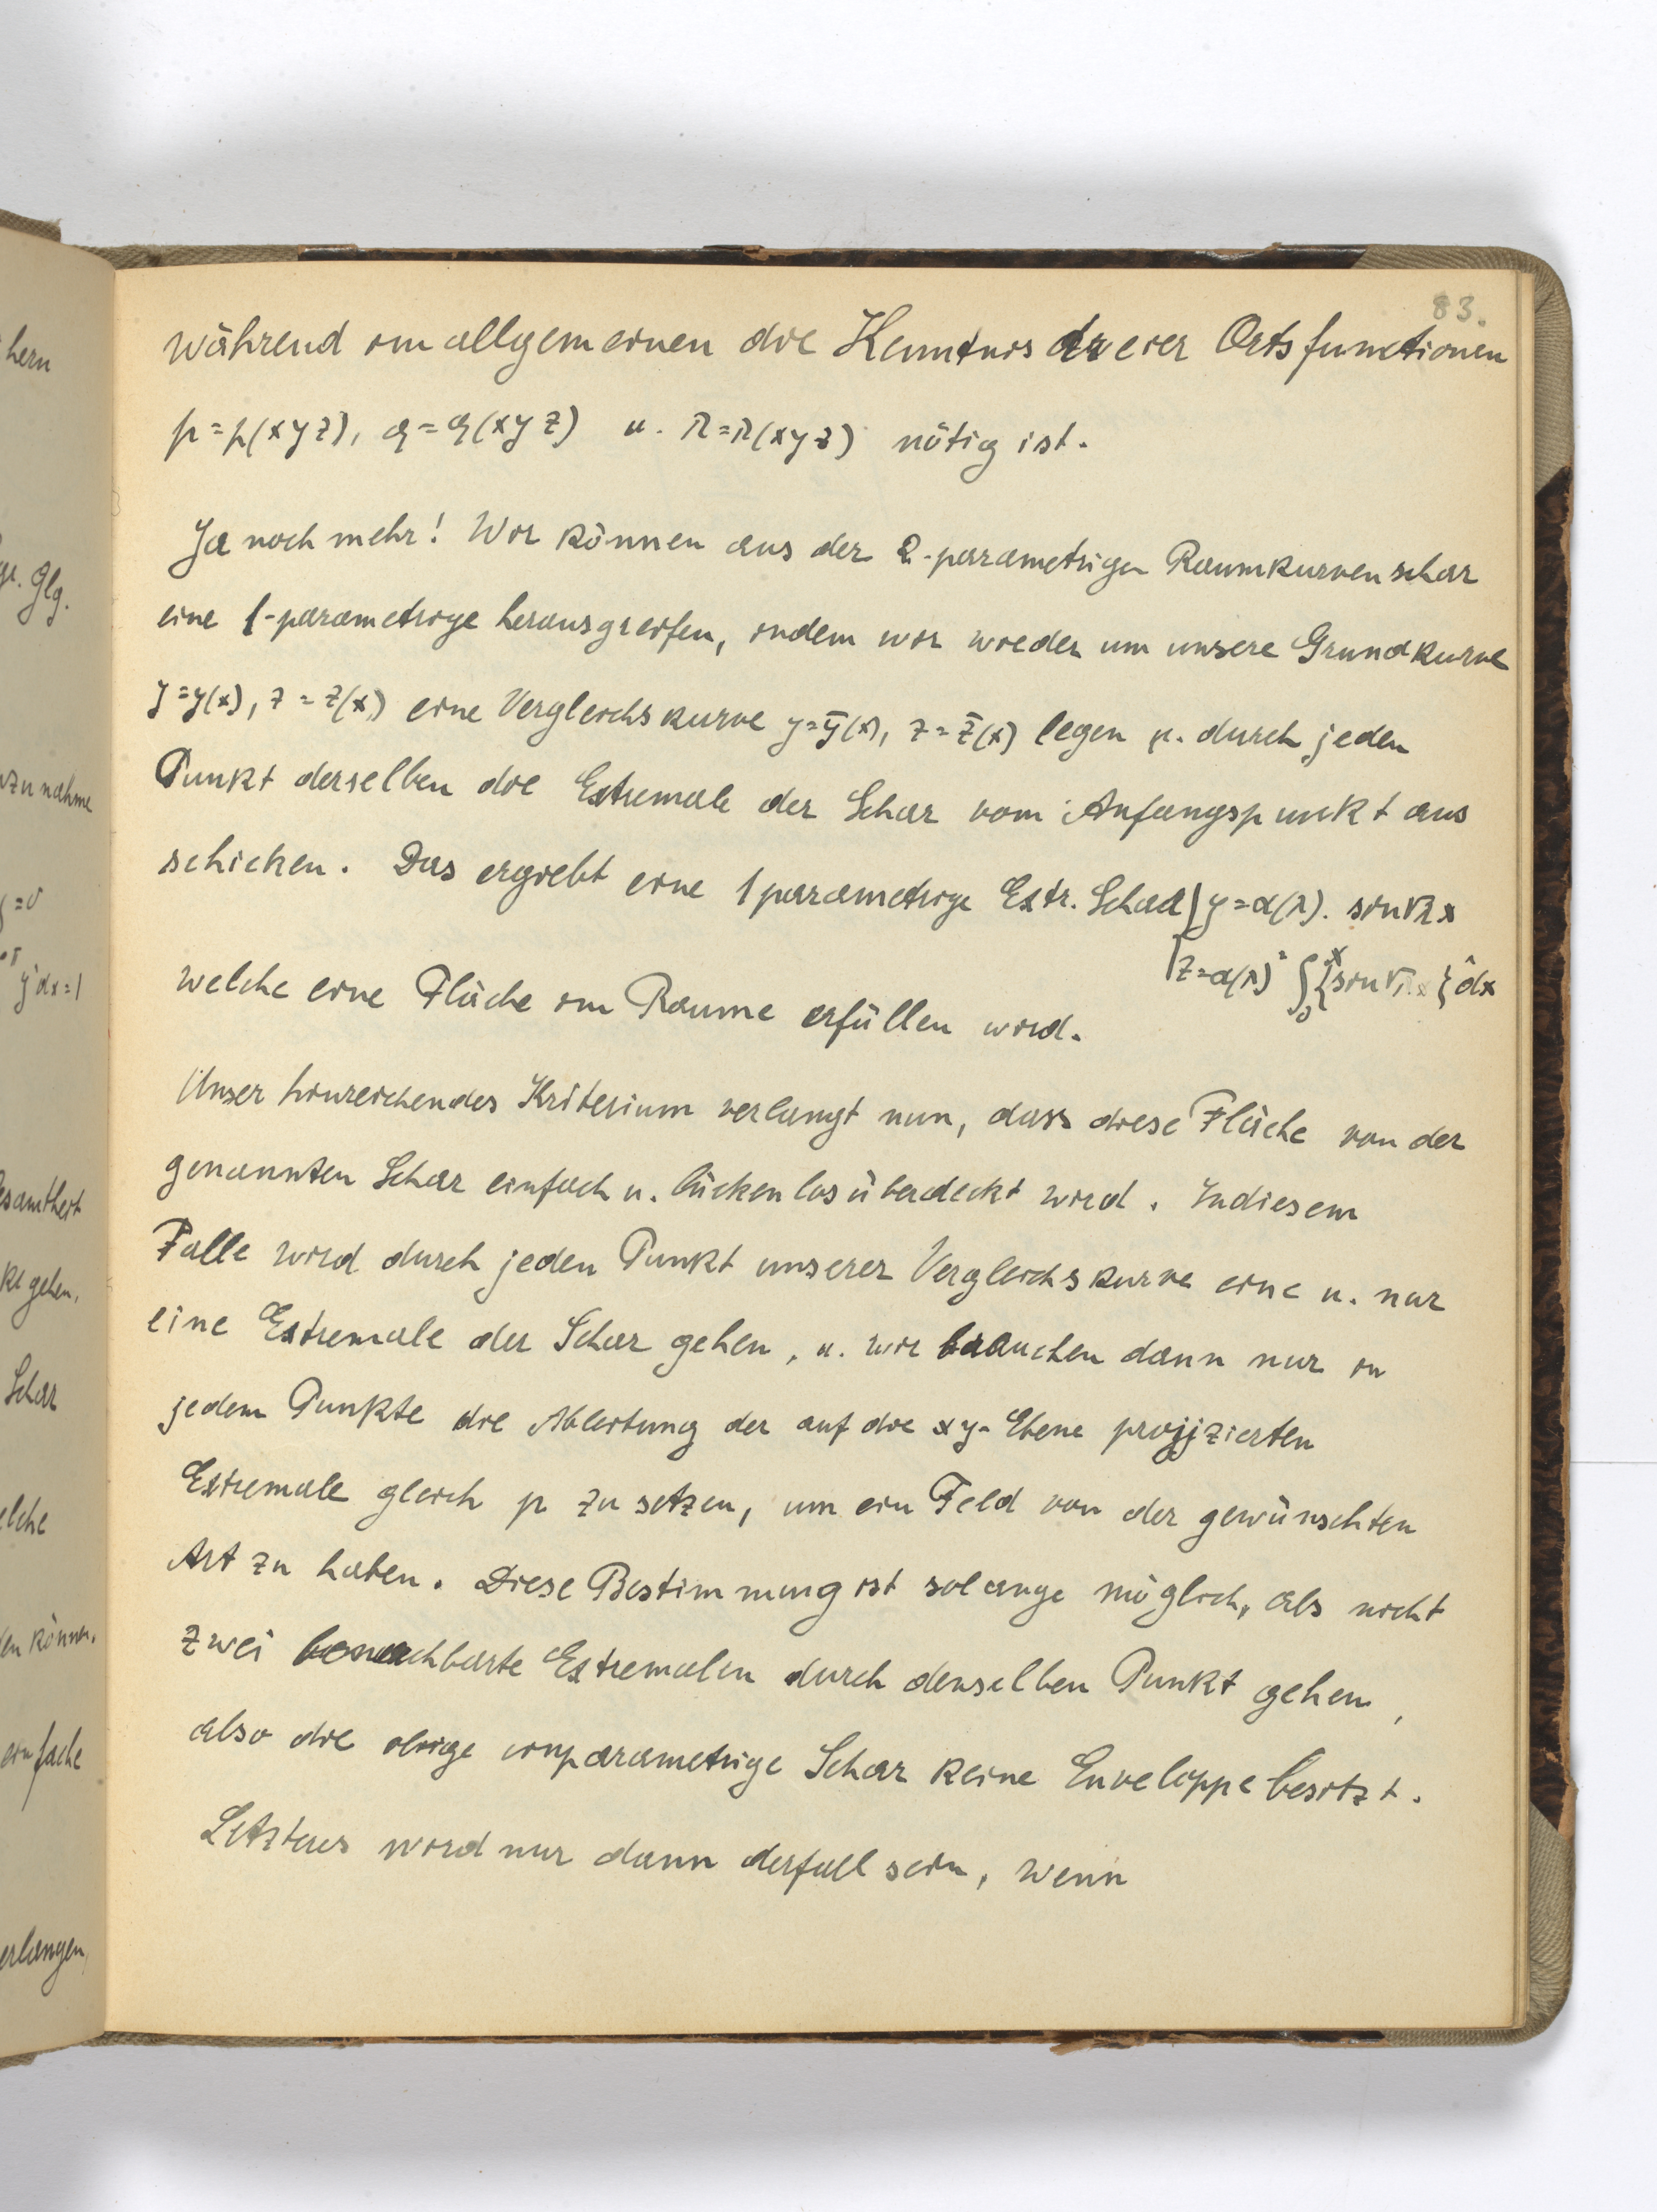 hern
ge. Glg.
zunahme
y²dx=1
esamtheit
kt gehen,
Schar
elche
en können,
einfache
erlangen,
83.
während im allgemeinen die Kenntnis dreier Ortsfunctionen
p=p(xyz), q=q(xyz) u. r=r(xyz) nötig ist.
Ja noch mehr! Wir können aus der 2-parametrigen Raumkurvenschar
eine 1-parametrige herausgreifen, indem wir wieder um unsere Grundkurve
y=y(x), z=z(x) eine Vergleichskurve y=ȳ(x), z=z̄(x) legen u. durch jeden
Punkt derselben die Extremale der Schar vom Anfangspunkt aus
schicken. Das ergiebt eine 1parametrige Extr. Schar { y=α(λ). sin√λx
z=α(λ)² ∫₀ˣ{sin√λx}²dx
welche eine Fläche im Raume erfüllen wird.
Unser hinreichendes Kriterium verlangt nun, dass diese Fläche von der
genannten Schar einfach u. lückenlos überdeckt wird. In diesem
Falle wird durch jeden Punkt unserer Vergleichskurve eine u. nur
eine Extremale der Schar gehen, u. wir brauchen dann nur in
jedem Punkte die Ableitung der auf die xy-Ebene projizierten
Extremale gleich p zu setzen, um ein Feld von der gewünschten
Art zu haben. Diese Bestimmung ist solange möglich, als nicht
zwei benachbarte Extremalen durch denselben Punkt gehen,
also die obige einparametrige Schar keine Enveloppe besitzt.
Letzteres wird nur dann der fall sein, wenn